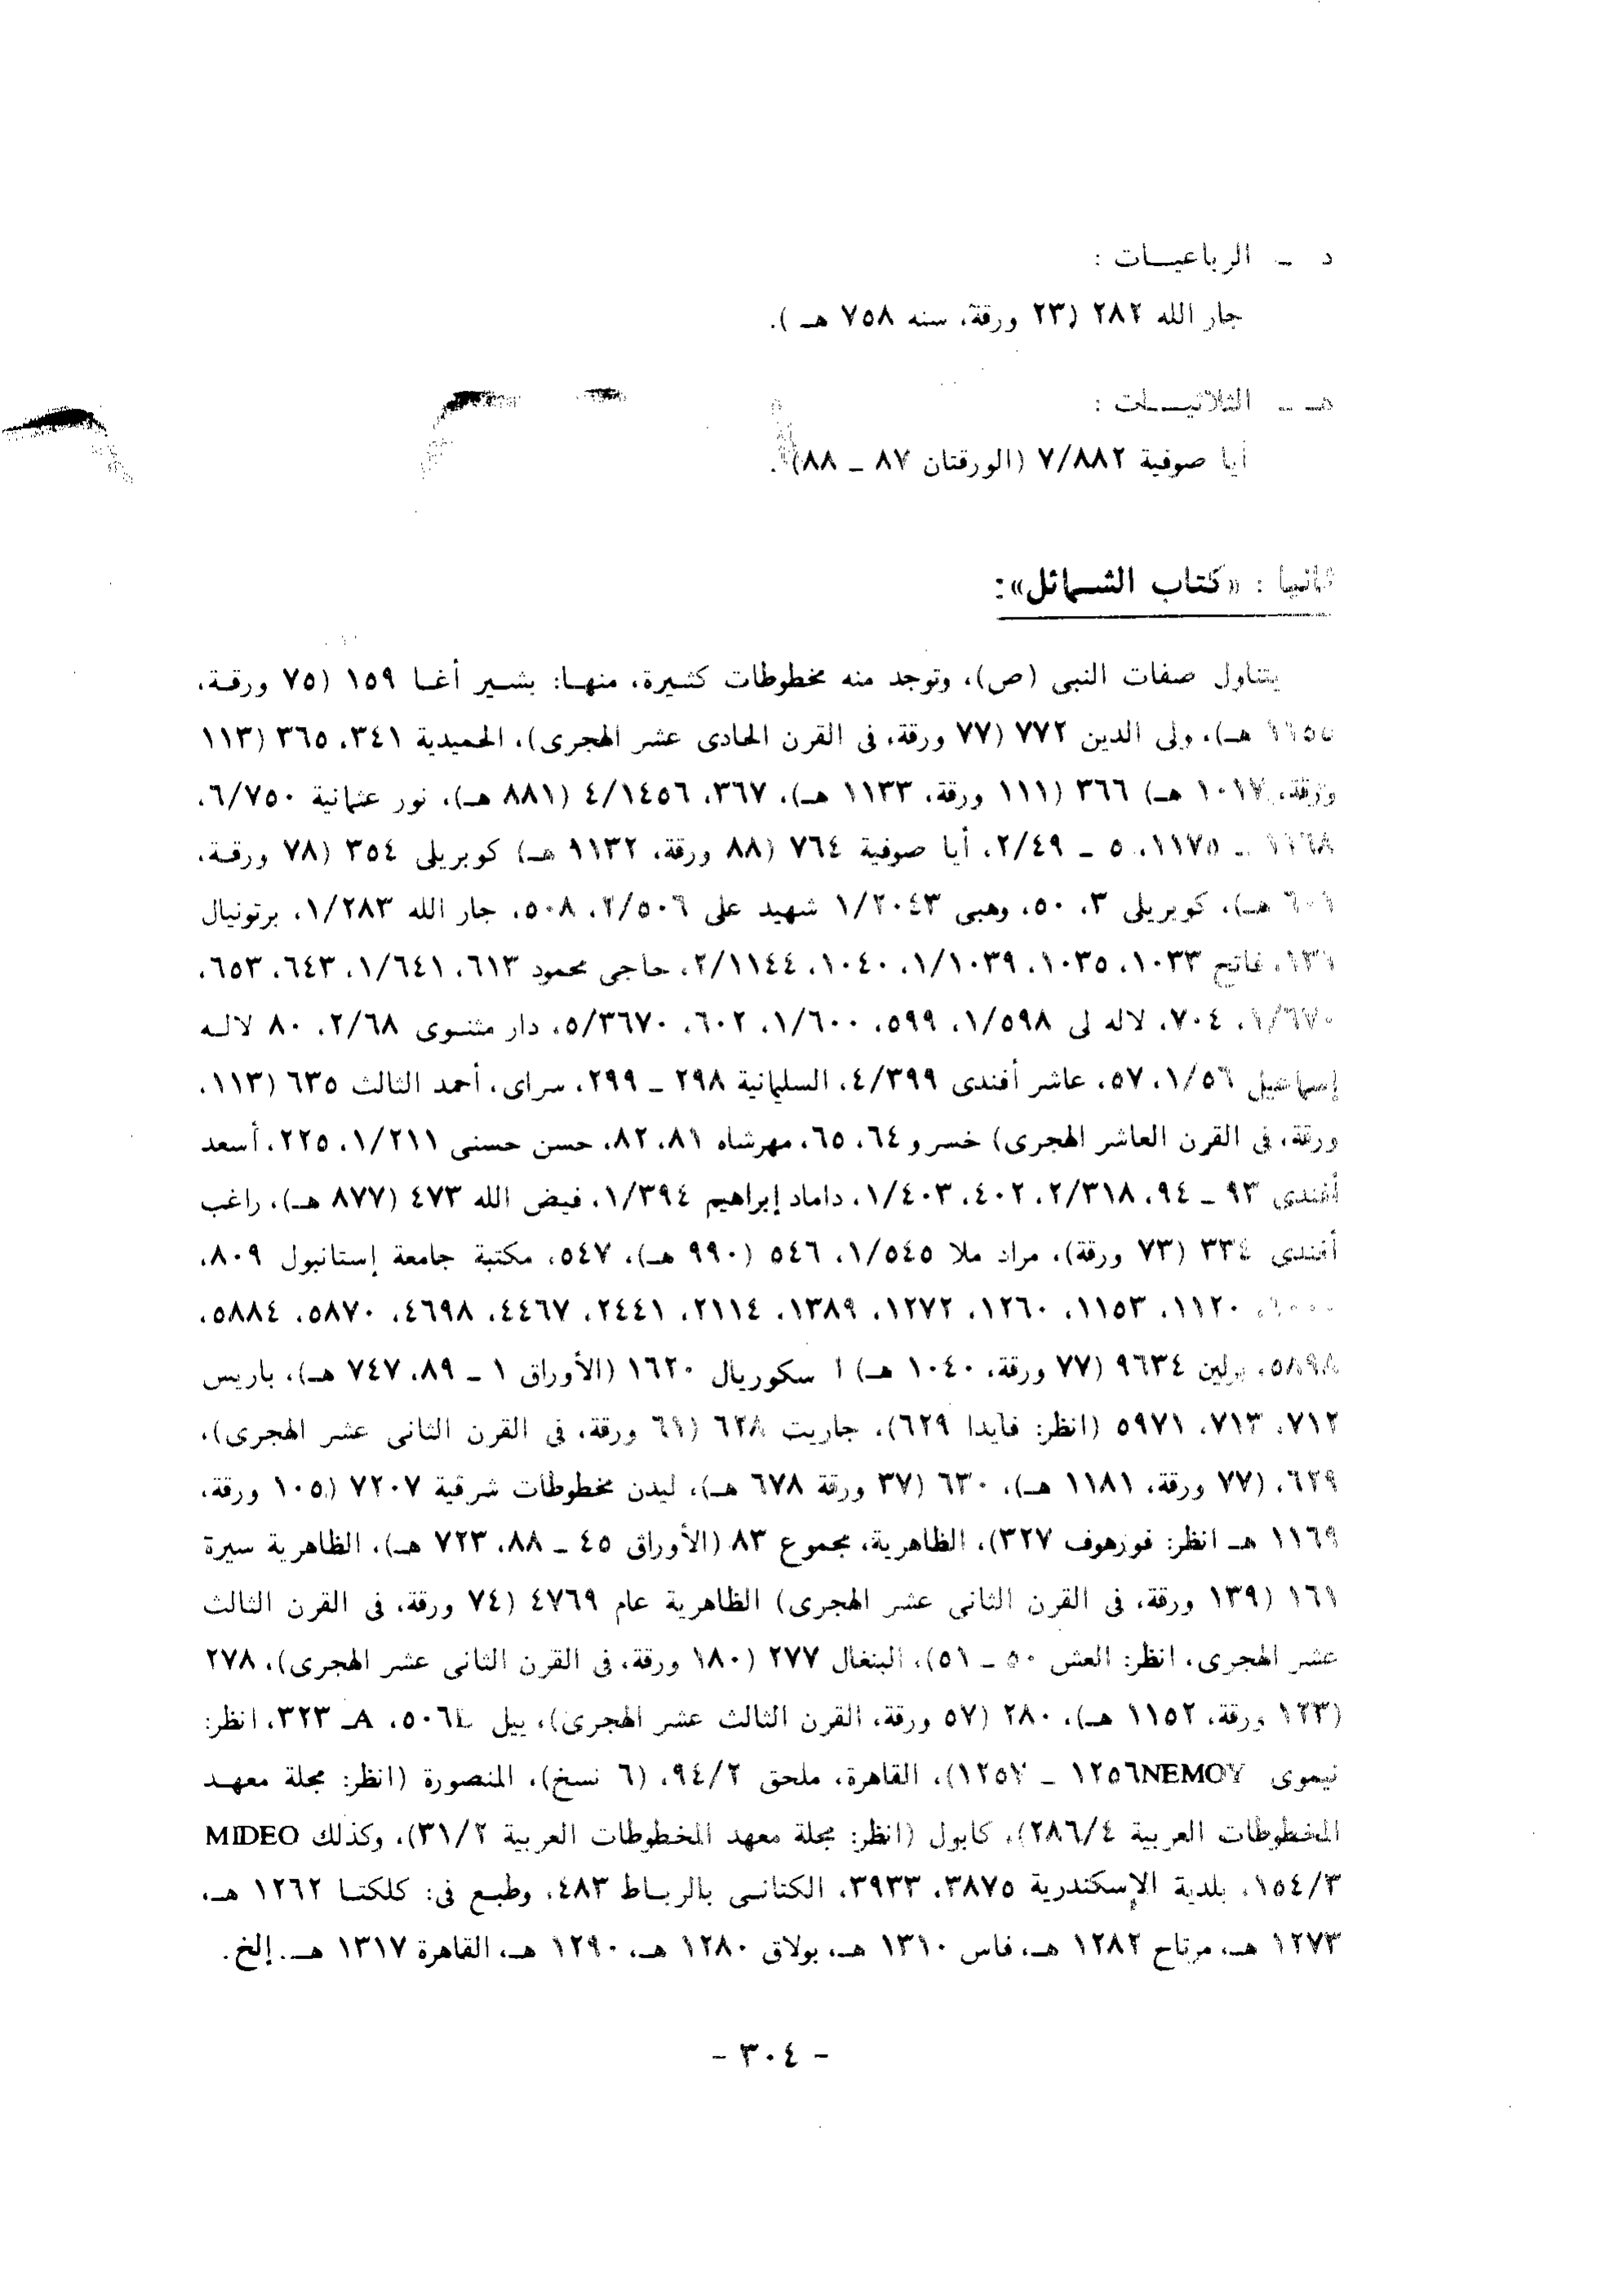 د - الرباعيات :
جار الله ٢٨٢ (٢٣ ورقة، سنه ٧٥٨ هـ ).
هـ - الثلاثيات :
أيا صوفية ٧/٨٨٢ (الورقتان ٨٧ - ٨٨).
ثانيا : «كتاب الشمائل»:
يتناول صفات النبى (ص)، وتوجد منه مخطوطات كثيرة، منها: بشير أغا ١٥٩ (٧٥ ورقة،
هـ)، ولى الدين ٧٧٢ (٧٧ ورقة، فى القرن الحادى عشر الهجرى)، الحميدية ٣٤١، ٣٦٥ (١١٣
ورقة، ١٠١٧ هـ) ٣٦٦ (١١١ ورقة، ١١٣٣ هـ)، ٣٦٧، ٤/١٤٥٦ (٨٨١ هـ)، نور عثمانية ٦/٧٥٠،
- ١١٧٥، ٥ - ٢/٤٩، أيا صوفية ٧٦٤ (٨٨ ورقة، ١١٣٢ هـ) كوبريلى ٣٥٤ (٧٨ ورقة،
٦٠٦ هـ)، كوبريلى ٣، ٥٠، وهبى ١/٢٠٤٣ شهيد على ٢/٥٠٦، ٥٠٨، جار الله ١/٢٨٣، برتونيال
فاتح ١٠٣٣، ١٠٣٥، ١/١٠٣٩، ١٠٤٠، ٢/١١٤٤، حاجى محمود ٦١٣، ١/٦٤١، ٦٤٣، ٦٥٣،
١/٦٧٠، ٧٠٤، لاله لى ١/٥٩٨، ٥٩٩، ١/٦٠٠، ٦٠٢، ٥/٣٦٧٠، دار مثنوى ٢/٦٨، ٨٠ لاله
إسماعيل ١/٥٦، ٥٧، عاشر أفندى ٤/٣٩٩، السليمانية ٢٩٨ - ٢٩٩، سراى، أحمد الثالث ٦٣٥ (١١٣،
ورقة، فى القرن العاشر الهجرى) خسرو ٦٤، ٦٥، مهرشاه ٨١، ٨٢، حسن حسنى ١/٢١١، ٢٢٥، أسعد
أفندى ٩٣ - ٩٤، ٢/٣١٨، ٤٠٢، ١/٤٠٣، داماد إبراهيم ١/٣٩٤، فيض الله ٤٧٣ (٨٧٧ هـ)، راغب
أفندى ٣٣٤ (٧٣ ورقة)، مراد ملا ١/٥٤٥، ٥٤٦ (٩٩٠ هـ)، ٥٤٧، مكتبة جامعة إستانبول ٨٠٩،
١١٢٠، ١١٥٣، ١٢٦٠، ١٢٧٢، ١٣٨٩، ٢١١٤، ٢٤٤١، ٤٤٦٧، ٤٦٩٨، ٥٨٧٠، ٥٨٨٤،
٥٨٩٨، برلين ٩٦٣٤ (٧٧ ورقة، ١٠٤٠ هـ) ا سكوريال ١٦٢٠ (الأوراق ١ - ٨٩، ٧٤٧ هـ)، باريس
٧١٢، ٧١٣، ٥٩٧١ (انظر: فايدا ٦٢٩)، جاريت ٦٢٨ (٦١ ورقة، فى القرن الثانى عشر الهجرى)،
٦٢٩، (٧٧ ورقة، ١١٨١ هـ)، ٦٣٠ (٣٧ ورقة ٦٧٨ هـ)، ليدن مخطوطات شرقية ٧٢٠٧ (١٠٥ ورقة،
١١٦٩ هـ انظر: فورهوف ٣٢٧)، الظاهرية، مجموع ٨٣ (الأوراق ٤٥ - ٨٨، ٧٢٣ هـ)، الظاهرية سيرة
١٦١ (١٣٩ ورقة، فى القرن الثانى عشر الهجرى) الظاهرية عام ٤٧٦٩ (٧٤ ورقة، فى القرن الثالث
عشر الهجرى، انظر: العش ٥٠ - ٥١)، البنغال ٢٧٧ (١٨٠ ورقة، فى القرن الثانى عشر الهجرى)، ٢٧٨
(١٢٣ ورقة، ١١٥٢ هـ)، ٢٨٠ (٥٧ ورقة، القرن الثالث عشر الهجرى)، ييل L٥٠٦، A- ٣٢٣، انظر:
نيموى NEMOY١٢٥٦ - ١٢٥٧)، القاهرة، ملحق ٩٤/٢، (٦ نسخ)، المنصورة (انظر: مجلة معهد
المخطوطات العربية ٢٨٦/٤)، كابول (انظر: مجلة معهد المخطوطات العربية ٣١/٢)، وكذلك MIDEO
١٥٤/٣، بلدية الإسكندرية ٣٨٧٥، ٣٩٣٣، الكتانى بالرباط ٤٨٣، وطبع فى: كلكتا ١٢٦٢ هـ،
١٢٧٣ هـ، مرتاح ١٢٨٢ هـ، فاس ١٣١٠ هـ، بولاق ١٢٨٠ هـ، ١٢٩٠ هـ، القاهرة ١٣١٧ هـ.. إلخ.
- ٣٠٤ -